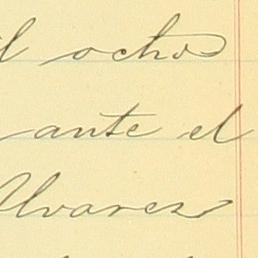 l ochos
ante el
Alvarez